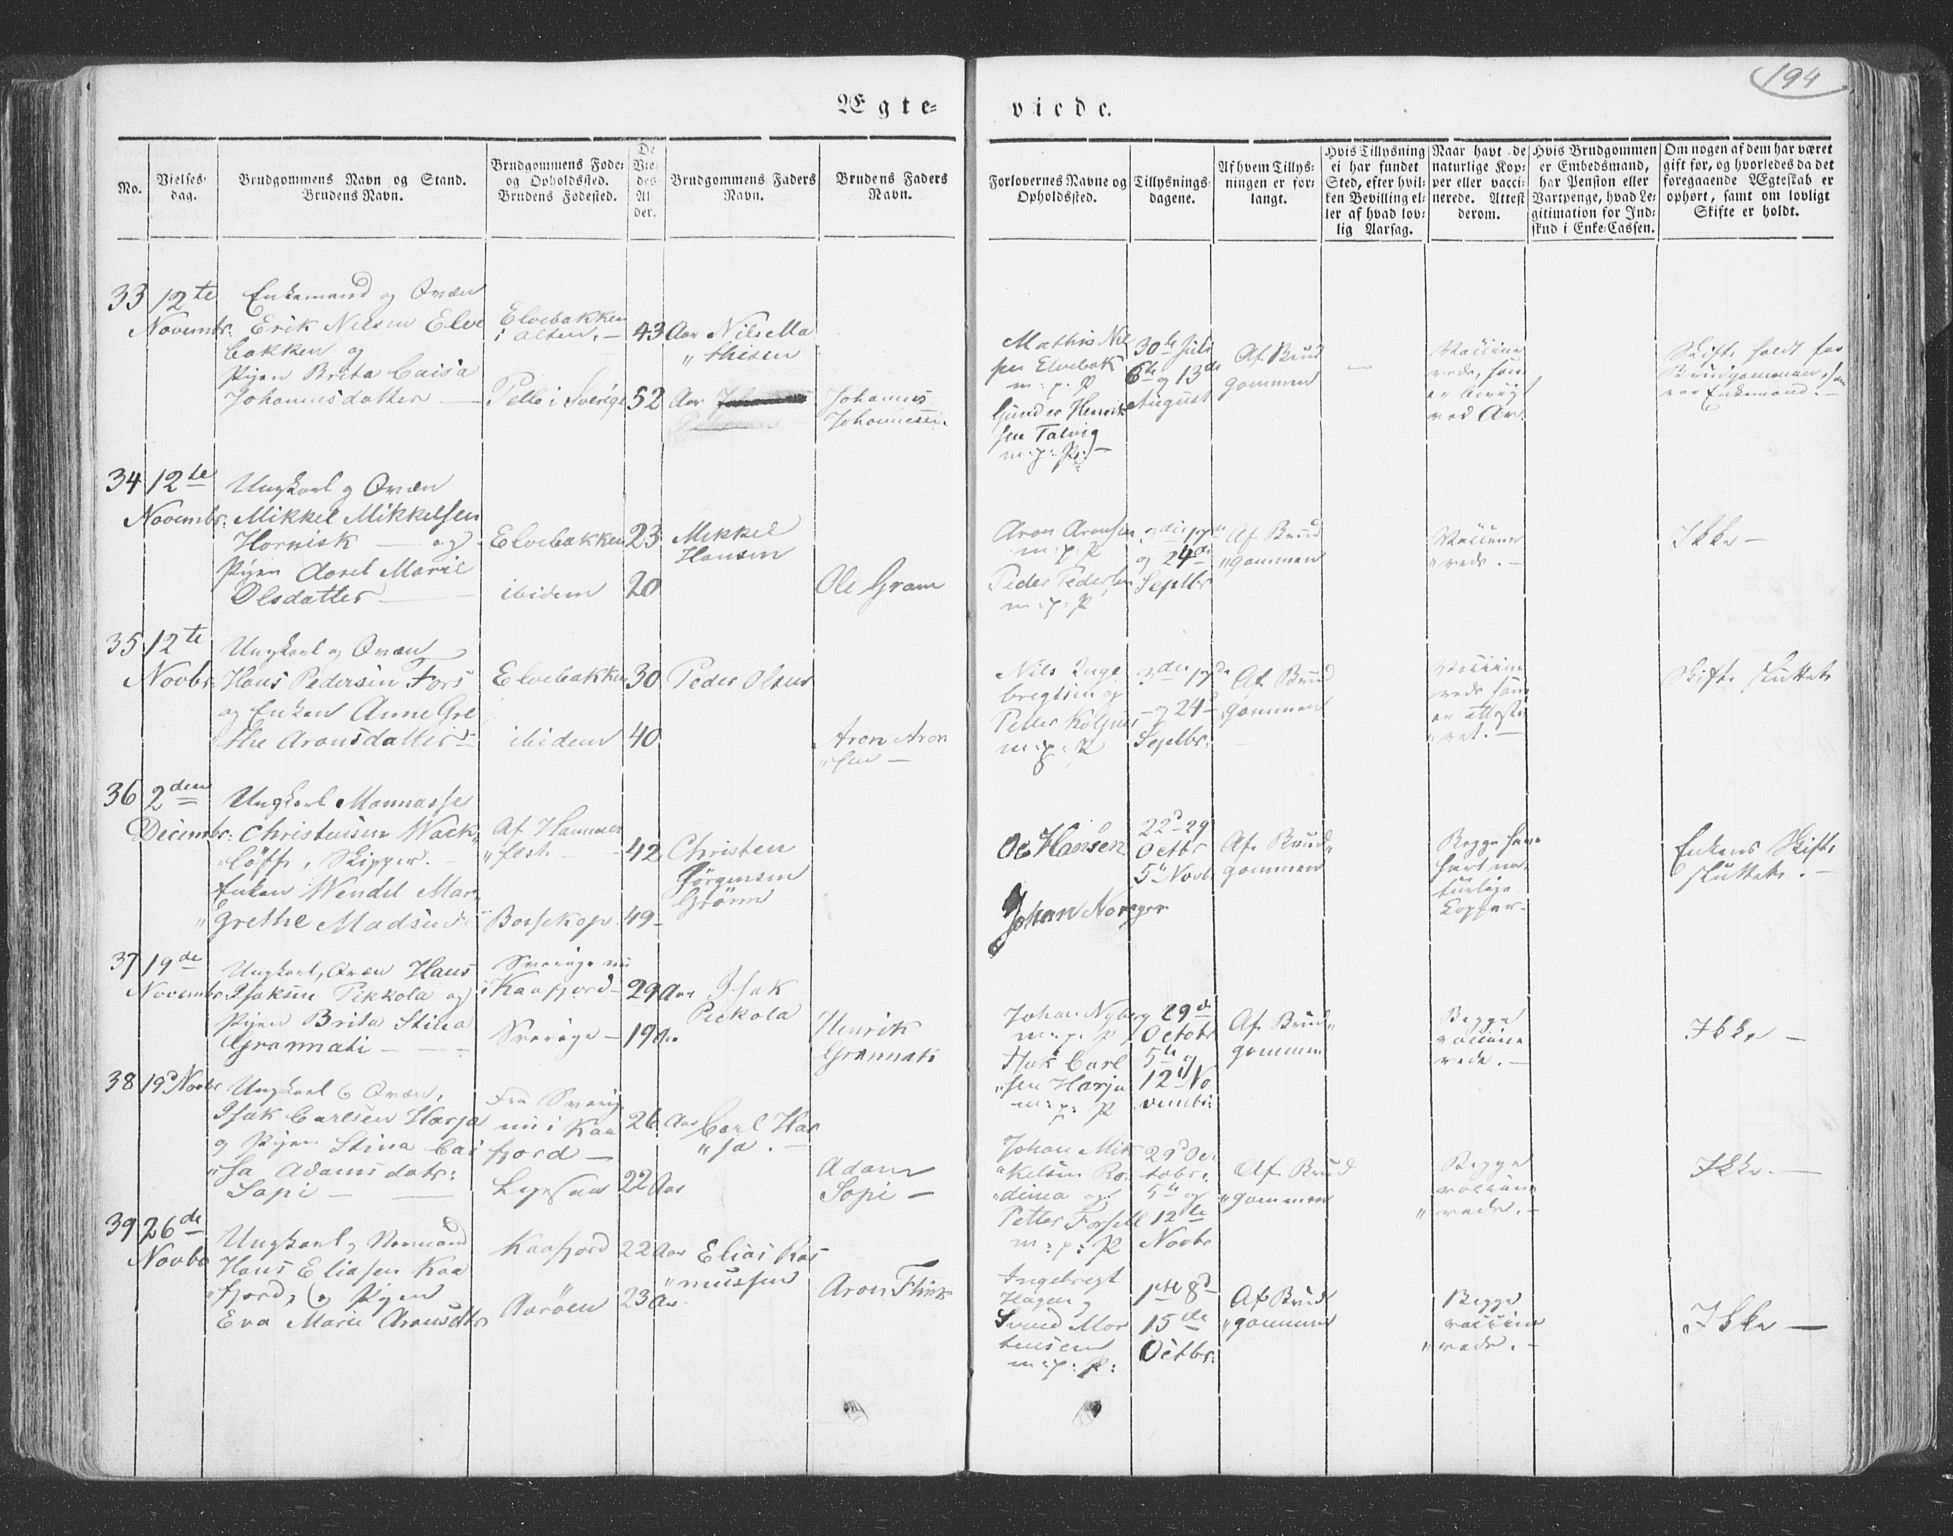 194
Ægte-
viede.
No.
Vielses-
dag.
Brudgommens Navn og Stand.
Brudens Navn.
Brudgommens Føde-
og Opholdssted.
Brudens Fødested.
De
Vie-
des
Al-
der.
Brudgommens Faders
Navn.
Brudens Faders
Navn.
Forlovernes Navne og
Opholdssted.
Tillysnings-
dagene.
Af hvem Tillys-
ningen er for-
langt.
Hvis Tillysning
ei har fundet
Sted, efter hvil-
ken Bevilling el-
ler af hvad lov-
lig Aarsag.
Naar havt de
naturlige Kop-
per eller vacci-
nerede. Attest
derom.
Hvis Brudgommen
er Embedsmand,
har Pension eller
Vartpenge, hvad Le-
gitimation for Ind-
skud i Enke-Cassen.
Om nogen af dem har været
gift før, og hvorledes da det
foregaaende Ægteskab er
ophørt, samt om lovligt
Skifte er holdt.
33
12te
Novembr:
Enkemand og Qvæn
Erik Nilsen Elve
bakken og
Pigen Brita Caisa
Johannsdatter —
Elvebakken
i Alten. —
Pello i Sverige
43 Aar
52 Aar
Nils Ma
" thisen
Johannes
Johannesen.
Mathis Nil
sen Elvebak
m: p: P
Gunder Henrik
sen Talvig
m: p: P: —
30te Juli
6te og 13de
August
Af Brud
gommen
—
Vaccine
rede, som
er bevist
ved At.
Skifte holdt for
Brudgommen, som
var Enkemand. —
34
12te
Novembr:
Ungkarl og Qvæn
Mikkel Mikkelsen
Hornisk — og
Pigen Aarel Marie
Olsdatter —
Elvebakken
ibidem
23
20
Mikkel
Hansen
Ole Gram
Aron Aronsen
m: p: P
Peder Pedersen
m: p: P
3die 17de
og 24de
Septbr
Af Brud
" gommen
Vaccine
" rede. —
Ikke —
35
12te
Novbr:
Ungkarl og Qvæn
Hans Pedersen Fors
og Enken Anne Gre
the Aronsdatter —
Elvebakken
ibidem
30
40
Peder Olsen
Aron Aron
" sen —
Nils Inge
bregtsen og
Peder
m: p: P
3die 17de
— og 24de
Septbr:
Af Brud
gommen
Vaccine
rede som
er atteste
" ret. —
Skifte sluttet
36
2den
Decembr:
Ungkarl Mannasse
Christensen Wack
" löff, Skipper. —
Enken Wendel Mar
" Grethe Madsend:
Af Hammer
" fest —
Bossekop
42
49 —
Christen
Jörgensen
Grönn
Ole Hansen
Johan Norager
22d 29
Octbr
5te Novb
Af Brud"
gommen
Begge have
havt na
turlige
Kopper.
Enkens Skifte
sluttet. —
37
19de
Novembr
Ungkarl, Qvæn Hans
Isaksen Pikkola og
Pigen Brita Stina
Grannati —
Sverige nu
i Kaafjord —
Sverige —
29 Aar
19 Aar
Isak
Pickola
Henrik
Grannati
Johan Nyberg
m: p: P
Isak Carl
" sen Harju
m: p: P
29de
Octobr
5te og
12te No
vembr:
Af Brud"
gommen
Begge
vaccine
rede. —
Ikke —
38
19d Novbr
Ungkarl & Qvæn,
Isak Carlsen Harja
og Pigen Stina Cai
" sa Adamsdatr:
Sopi —
Fra Sverig
nu i Kaa
fjord —
26 Aar
22 Aar
Carl Har
" ja. —
Adam
Sopi —
Johan Mik
" kelsen Ro
" dinea og
Petter Forsell
m: p: P
29d Oc
tobr:
5te og
12te
Novbr
Af Brud
" gommen
Begge
vaccine
" rede. —
Ikke. —
39
26de
Novbr
Ungkarl og Normand
Hans Eliasen Kaa
" fjord, og Pigen
Eva Marie Aronsdtr
Kaafjord
Aaröen
22 Aar
23 Aar
Elias Ras
" mussen
Aron Flink
Ingebregt
Hagen og
Svend Mor
tensen
m: p: P:
1ste 8d
15de
Octbr:
Af Brud
" gommen
Begge
vaccine
" rede. —
Ikke —